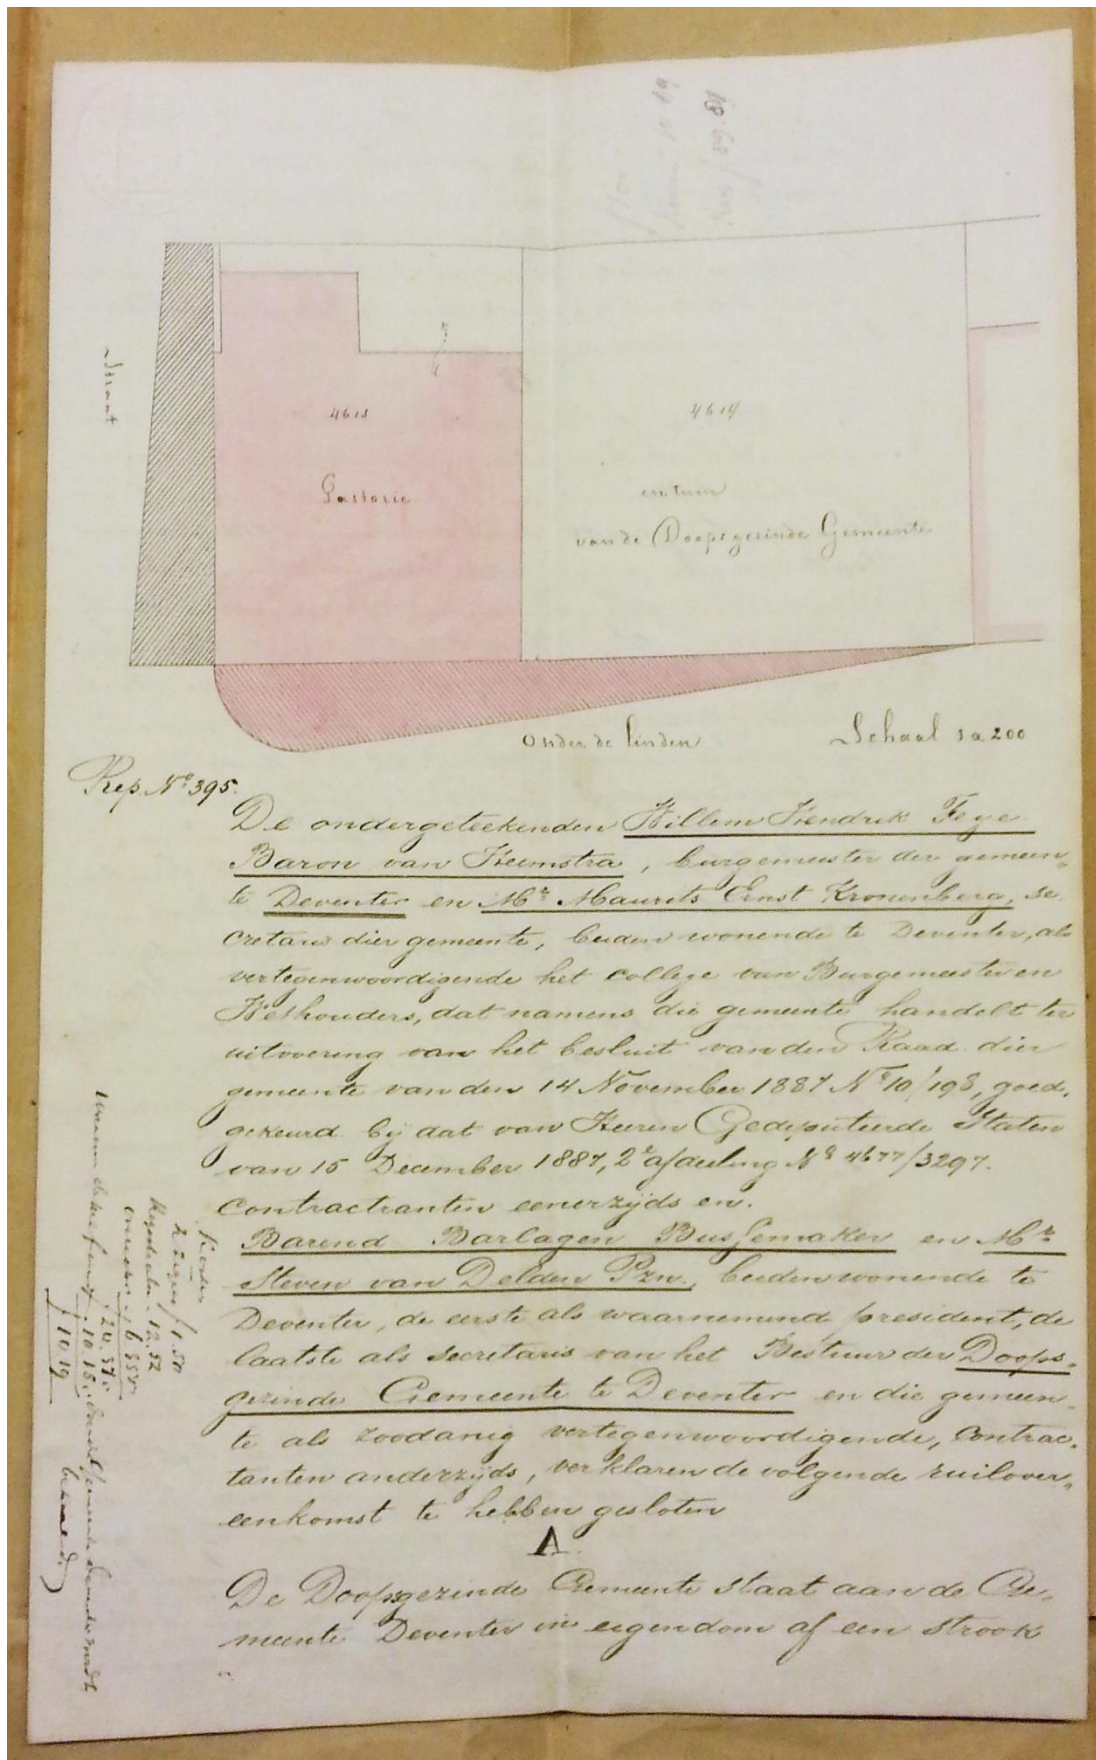 Straat
4613
Pastorie
4614
en tuin
van de Doopsgezinde Gemeente
Onder de linden
Schaal 1 a 200
Rep. Nº 395.
De ondergeteekenden Willem Hendrik Feye
Baron van Heemstra, burgemeester der gemeen-
te Deventer en Mr. Maurits Ernst Kronenberg, se-
cretaris dier gemeente, beiden wonende te Deventer, als
vertegenwoordigende het college van Burgemeester en
Wethouders, dat namens die gemeente handelt ter
uitvoering van het besluit van den Raad dier
gemeente van den 14 November 1887 Nº 10/198, goed-
gekeurd bij dat van Heeren Gedeputeerde Staten
van 15 December 1887, 2e afdeeling Nº 4677/3297.
contractranten eenerzijds en.
Barend Barlagen Bussemaker en Mr.
Steven van Delden Pzn., beiden wonende te
Deventer, de eerste als waarnemend president, de
laatste als secretaris van het Bestuur der Doops-
gezinde Gemeente te Deventer en die gemeen-
te als zoodanig vertegenwoordigende, contrac-
tanten anderzijds, verklaren de volgende ruilover-
eenkomst te hebben gesloten
A.
De Doopsgezinde Gemeente staat aan de Ge-
meente Deventer in eigendom af een strook
Kosten
2 zegels f 1.50
Registratie 12.52
10.15
10.19
betaald.